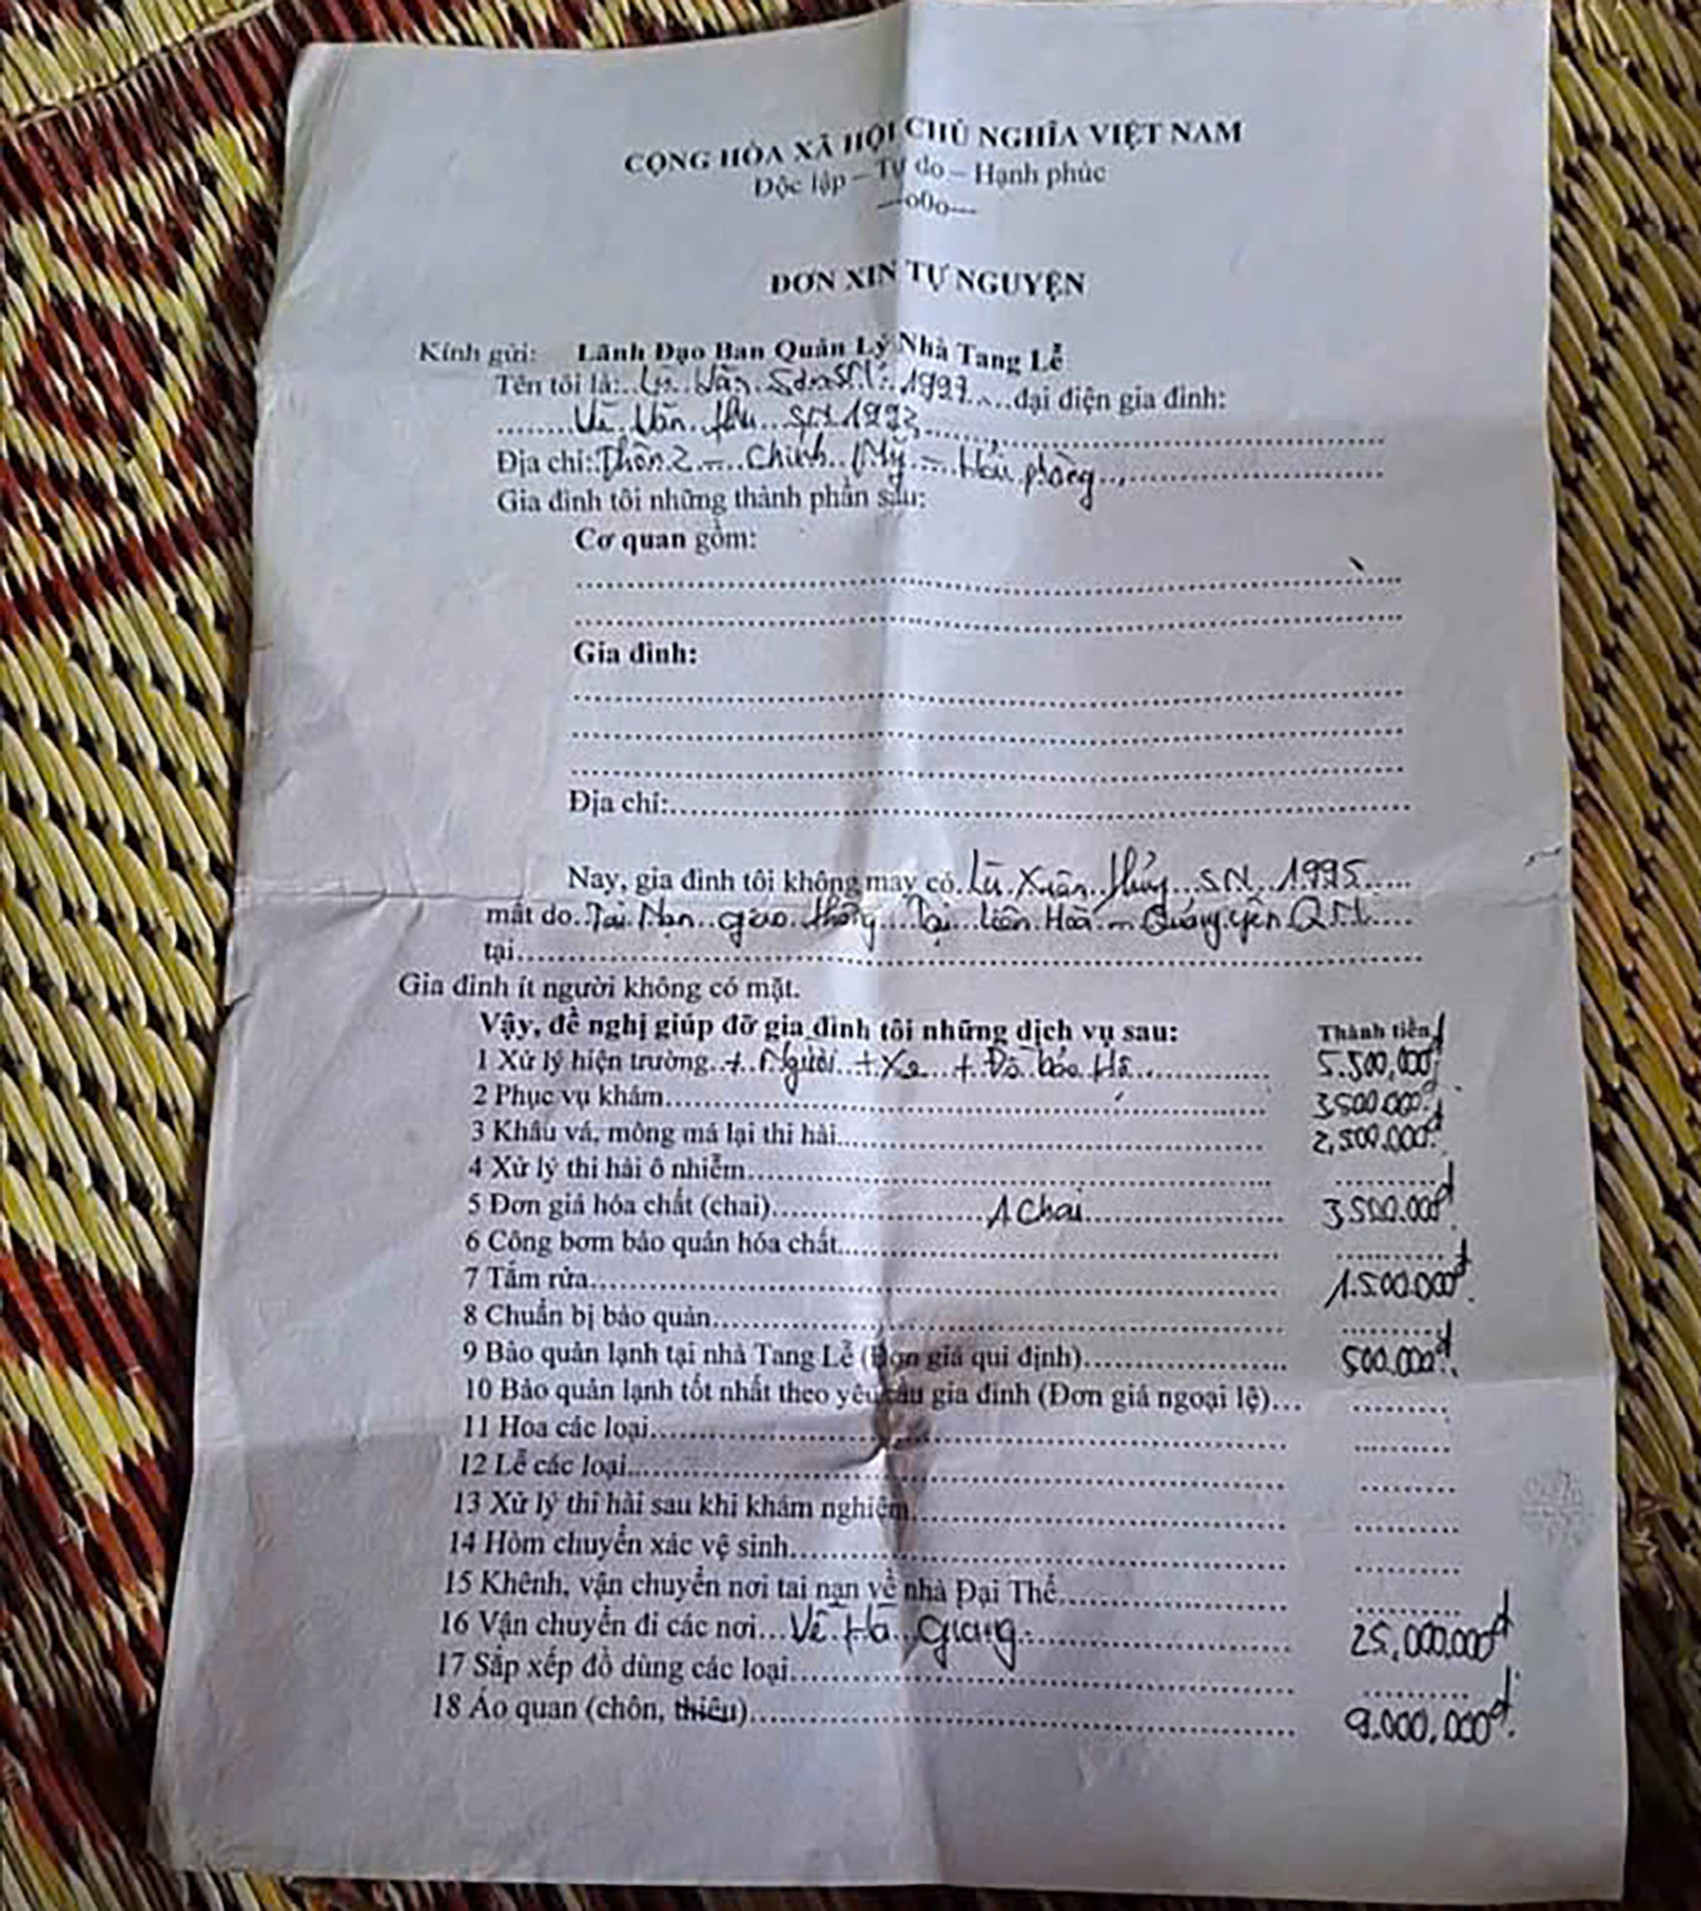 CỘNG HÒA XÃ HỘI CHỦ NGHĨA VIỆT NAM
Độc lập – Tự do – Hạnh phúc
---o0o---
ĐƠN XIN TỰ NGUYỆN
Kính gửi: Lãnh Đạo Ban Quản Lý Nhà Tang Lễ
Tên tôi là: Lù Văn SN: 1997 đại diện gia đình:
Văn SN 1993
Địa chỉ: Thôn 2 – Chính Mỹ – Hải phòng
Gia đình tôi những thành phần sau:
Cơ quan gồm:
Gia đình:
Địa chỉ:
Nay, gia đình tôi không may có Lù Xuân Thủy SN 1995
mất do Tai Nạn giao thông Tại Liên Hoà – Quảng yên QN
tại
Gia đình ít người không có mặt.
Vậy, đề nghị giúp đỡ gia đình tôi những dịch vụ sau: Thành tiền
1 Xử lý hiện trường + Người + Xe + Đồ bảo Hộ 5.500,000đ
2 Phục vụ khám 3500.000đ
3 Khâu vá, mông má lại thi hài 2,500.000đ
4 Xử lý thi hài ô nhiễm
5 Đơn giá hóa chất (chai) 1 Chai 3500.000đ
6 Công bơm bảo quản hóa chất
7 Tắm rửa 1.500.000đ
8 Chuẩn bị bảo quản
9 Bảo quản lạnh tại nhà Tang Lễ (Đơn giá qui định) 500.000đ
10 Bảo quản lạnh tốt nhất theo yêu cầu gia đình (Đơn giá ngoại lệ)
11 Hoa các loại
12 Lễ các loại
13 Xử lý thi hài sau khi khám nghiệm
14 Hòm chuyển xác vệ sinh
15 Khênh, vận chuyển nơi tai nạn về nhà Đại Thể
16 Vận chuyển đi các nơi Về Hà Giang 25,000.000đ
17 Sắp xếp đồ dùng các loại
18 Áo quan (chôn, thiêu) 9.000,000đ